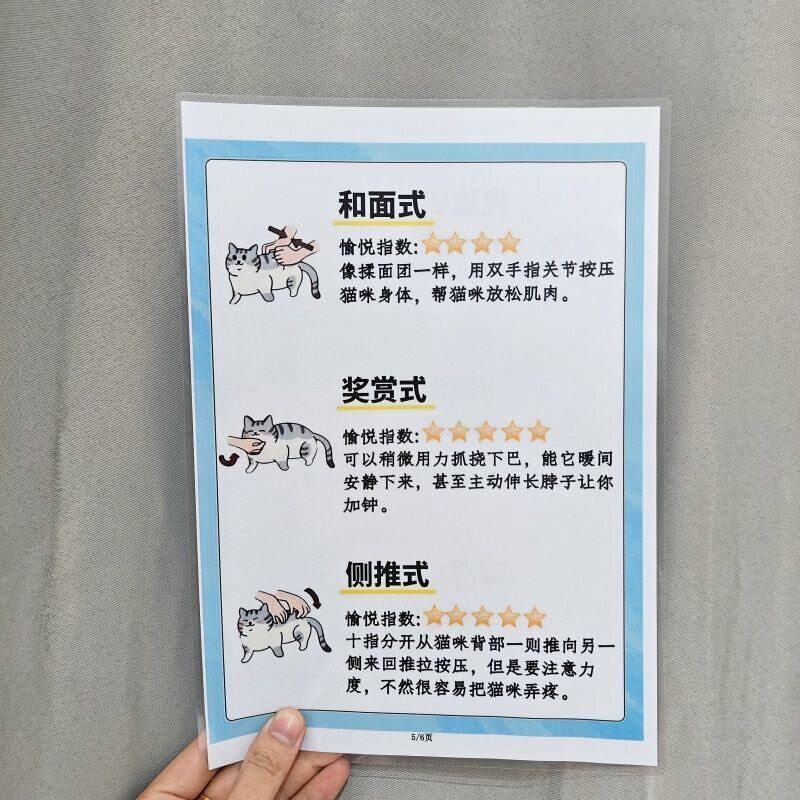 和面式
愉悦指数:
像揉面团一样，用双手指关节按压
猫咪身体，帮猫咪放松肌肉。
奖赏式
愉悦指数:
可以稍微用力抓挠下巴，能它暖间
安静下来，甚至主动伸长脖子让你
加钟。
侧推式
愉悦指数:
十指分开从猫咪背部一则推向另一
侧来回推拉按压，但是要注意力
度，不然很容易把猫咪弄疼。
5/6页